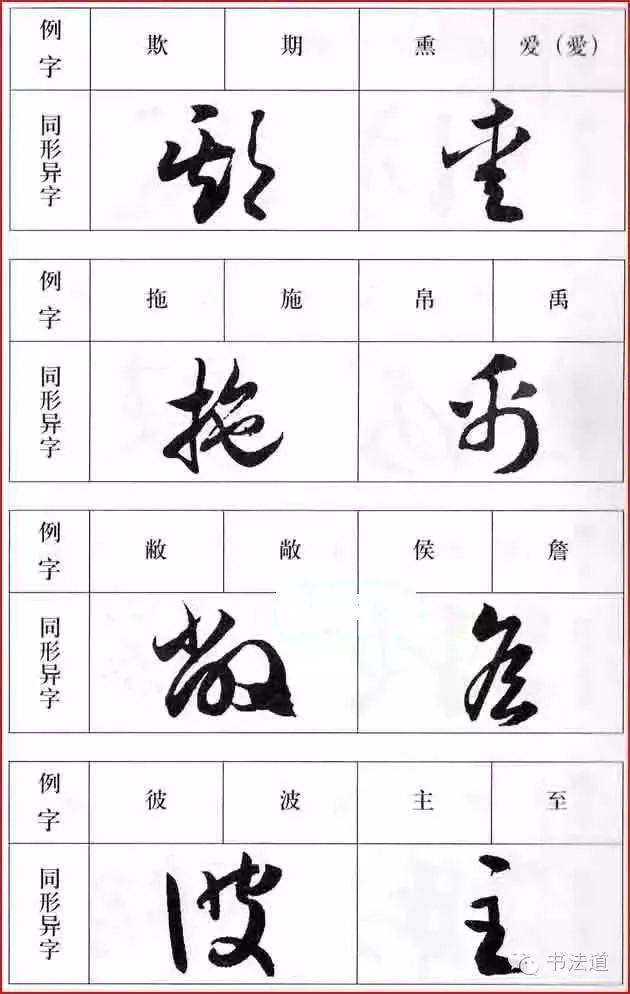 例字 欺 期 熏 爱（愛）
同形异字
例字 拖 施 帛 禹
同形异字
例字 敝 敞 侯 詹
同形异字
例字 彼 波 主 至
同形异字 主
书法道